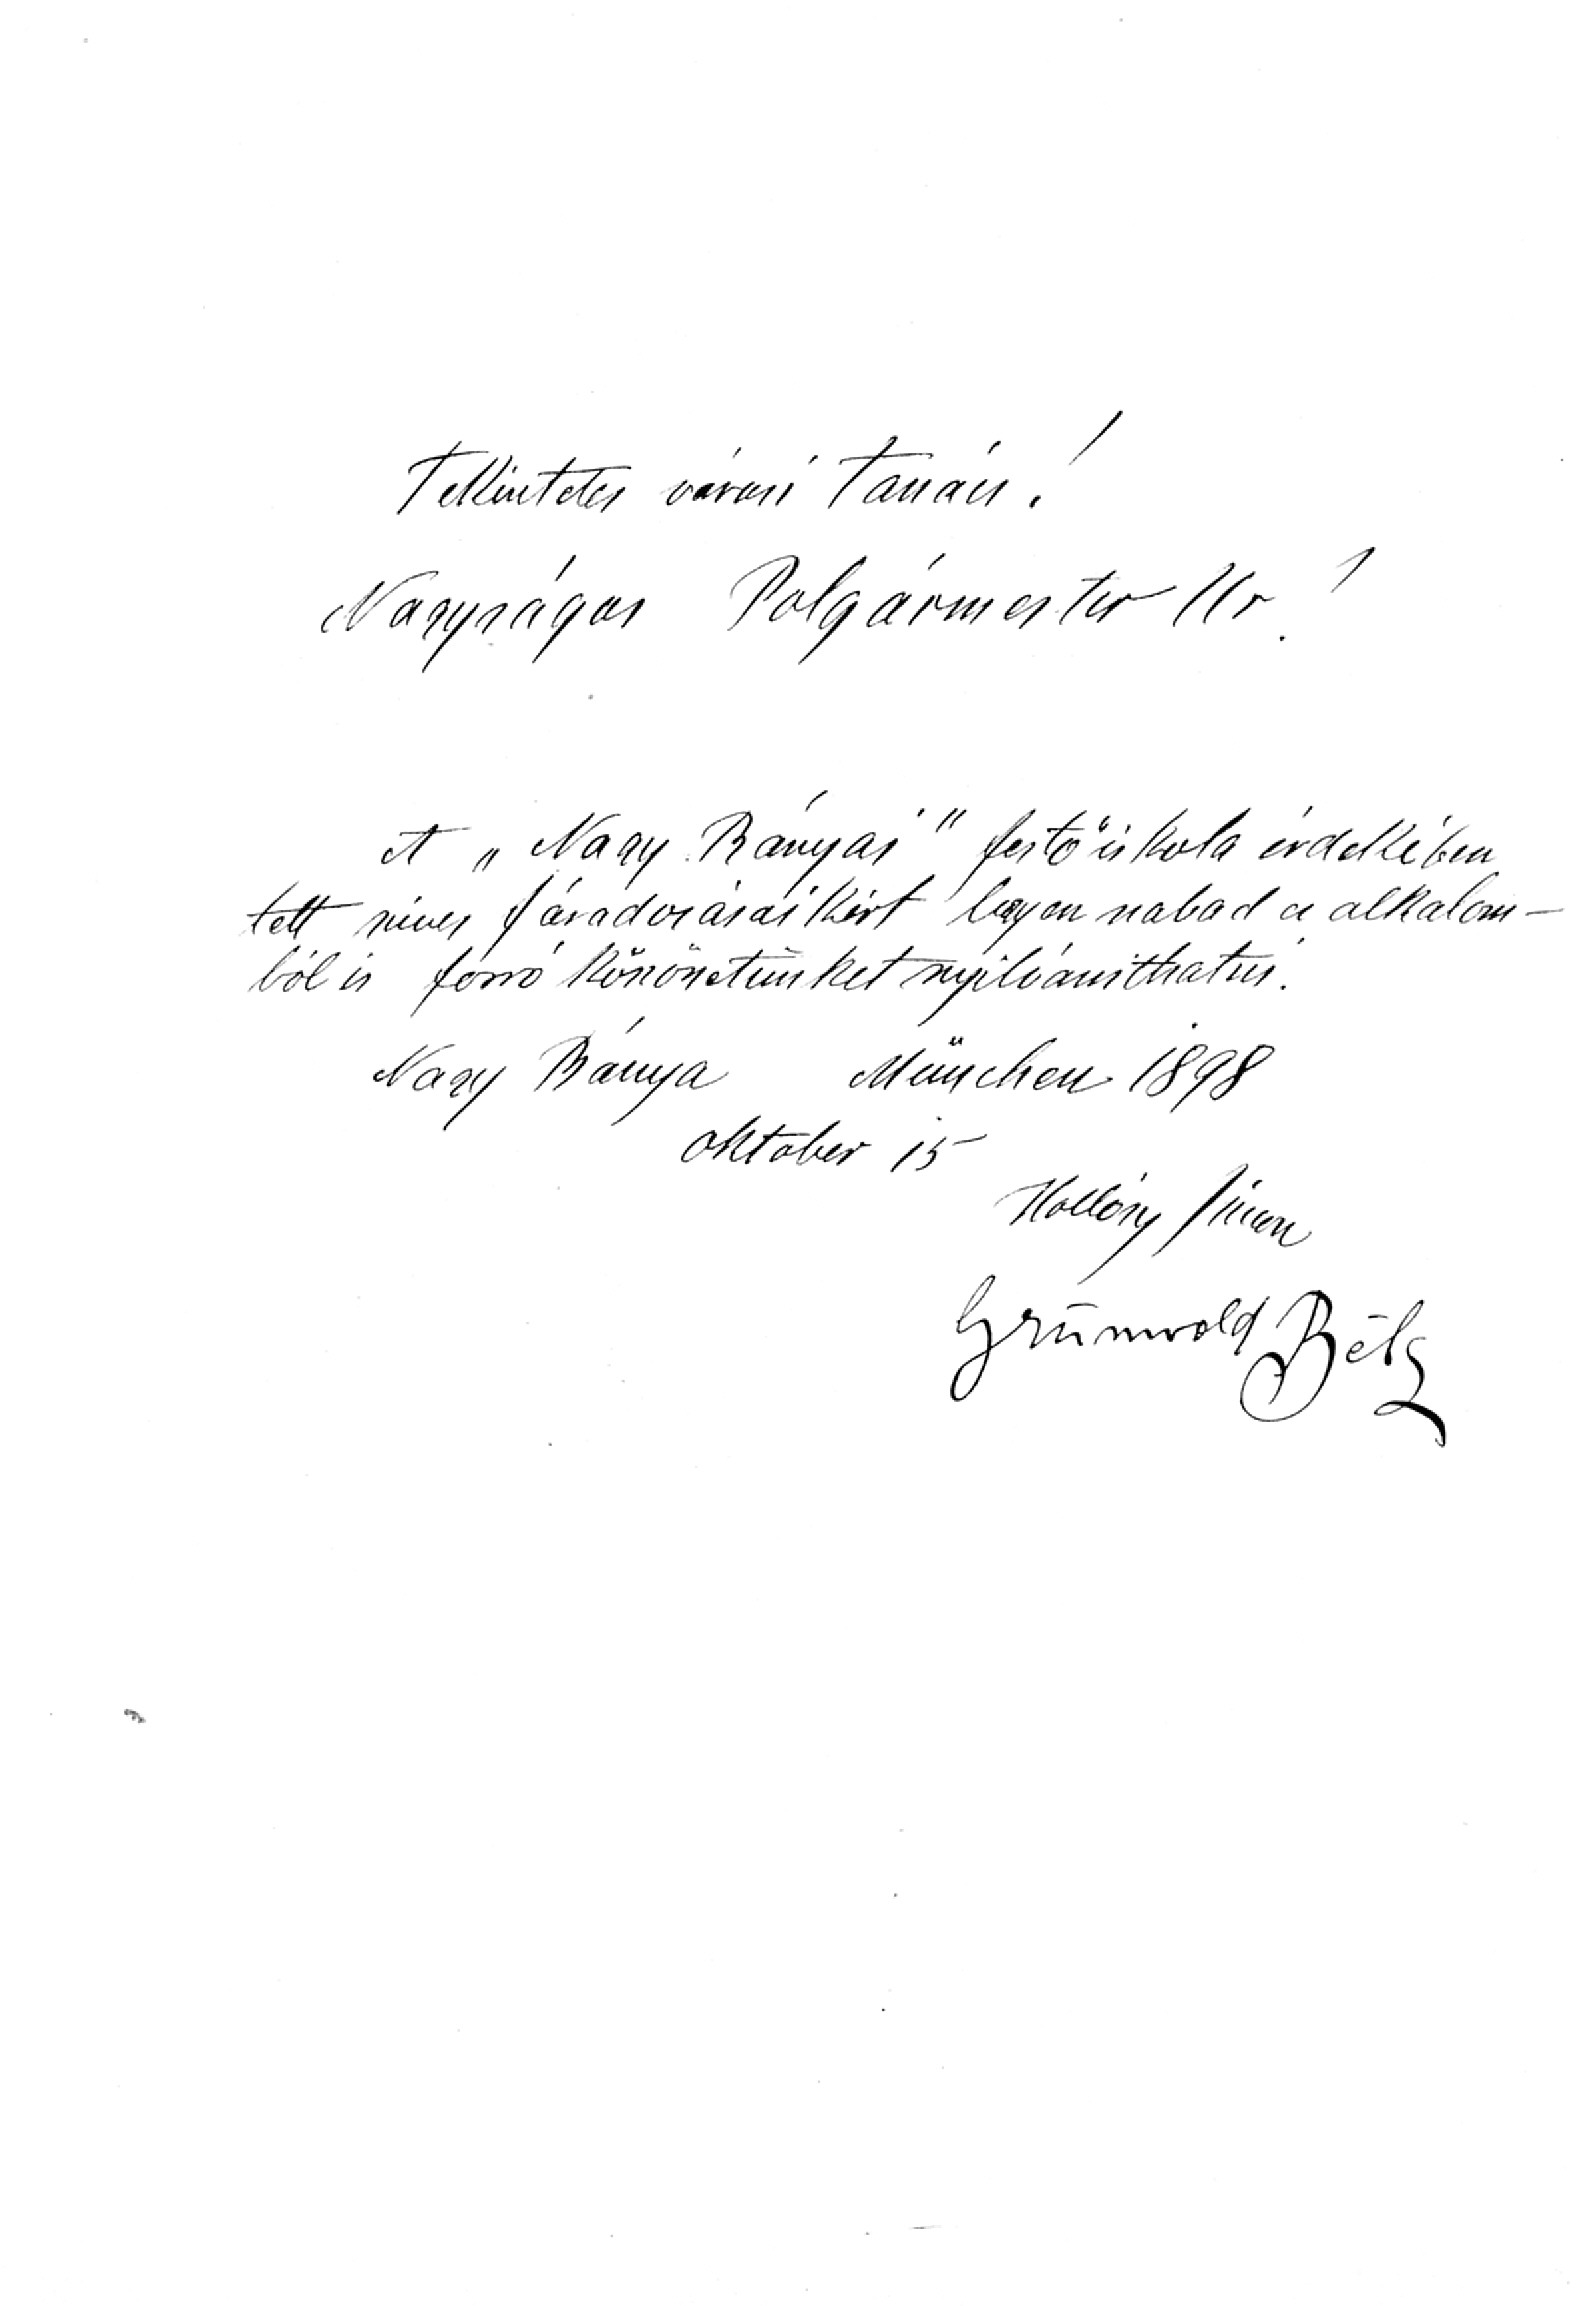 Tekintetes városi Tanács!
Nagyságos Polgármester Ur!
A „Nagy Bányai" festőiskola érdekében
tett szives fáradozásaikért legyen szabad ez alkalom-
ból is forró köszönetünket nyilvánithatni.
Nagy Bánya München 1898
oktober 15
Hollósy Simon
Grünwald Béla